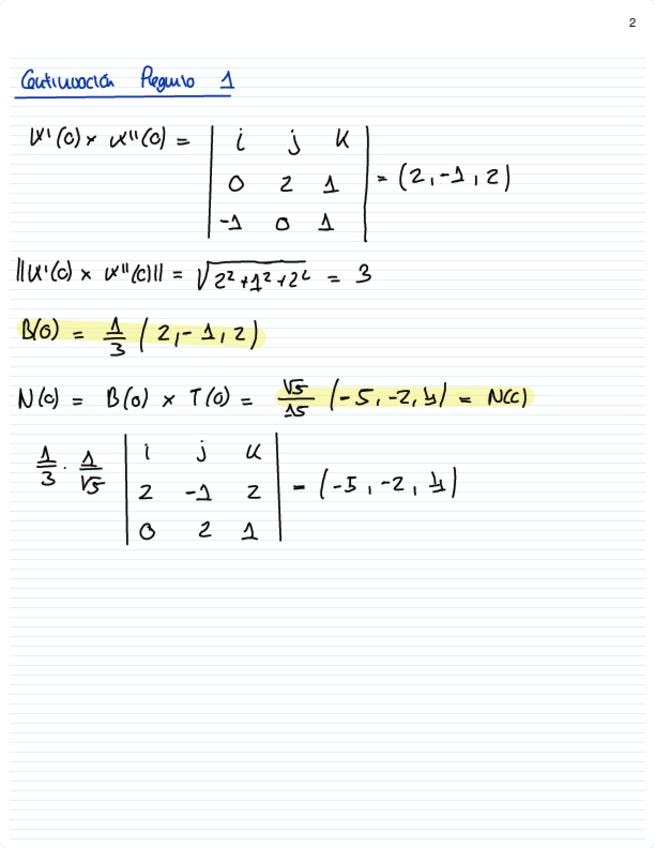 2
Continuación Pregunta 1
α'(0) × α''(0) = | i j k | = (2, -1, 2)
0 2 1
-1 0 1
||α'(0) × α''(0)|| = √2² + 1² + 2² = 3
B(0) = 1/3 (2, -1, 2)
N(0) = B(0) × T(0) = √5/15 (-5, -2, 4) = N(0)
1/3 · 1/√5 | i j k | = (-5, -2, 4)
2 -1 2
0 2 1